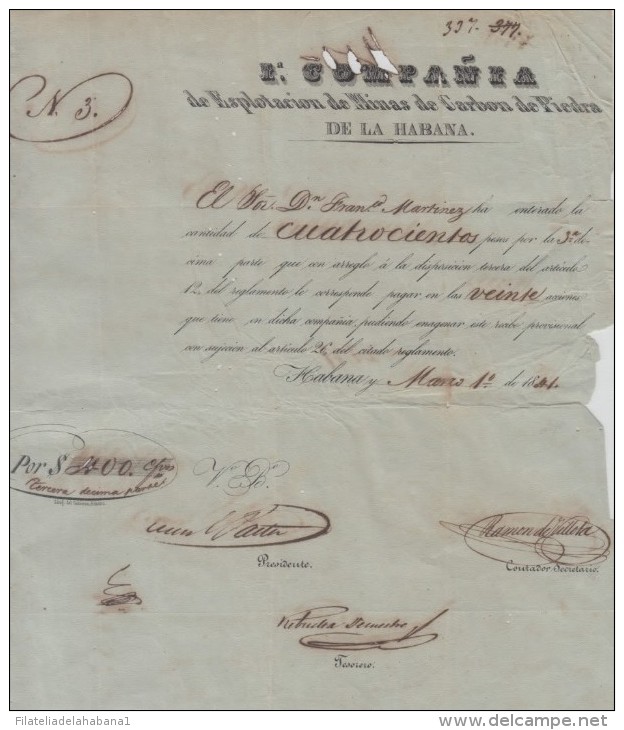 337. 377.
1ª COMPAÑIA
de Esplotacion de Minas de Carbon de Piedra
DE LA HABANA.
N. 3.
El Sor. Dn. Franco. Martinez há enterado la
cantidad de cuatrocientos pesos por la 3ª dé-
cima parte que con arreglo á la disposicion tercera del artículo
12. del reglamento le corresponde pagar en las veinte acciones
que tiene en dicha compañia, pudiendo enagenar este recibo provisional
con sujecion al artículo 26, del citado reglamento.
Habana y Marzo 1º de 1841.
Por $ 400.
tercera decima parte
V.º B.º
Presidente.
Ramon de
Contador Secretario.
Tesorero.
Filateliadelahabana1
www.delcampe.net